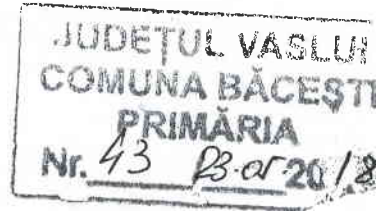 JUDEȚUL VASLUI
COMUNA BĂCEȘTI
PRIMĂRIA
Nr. 43 20 18